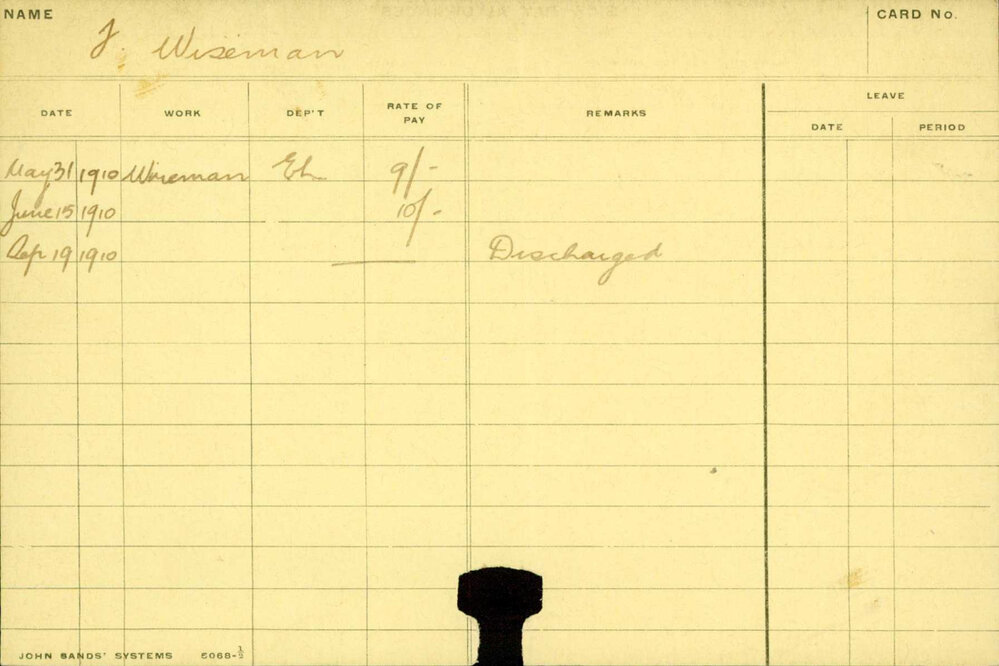 NAME
CARD No.
J. Wiseman
DATE WORK DEP'T RATE OF PAY REMARKS LEAVE
DATE PERIOD
May 31 1910 Wireman 9/-
June 15 1910 10/-
Sep 19 1910 Discharged
JOHN SANDS' SYSTEMS 6068-½